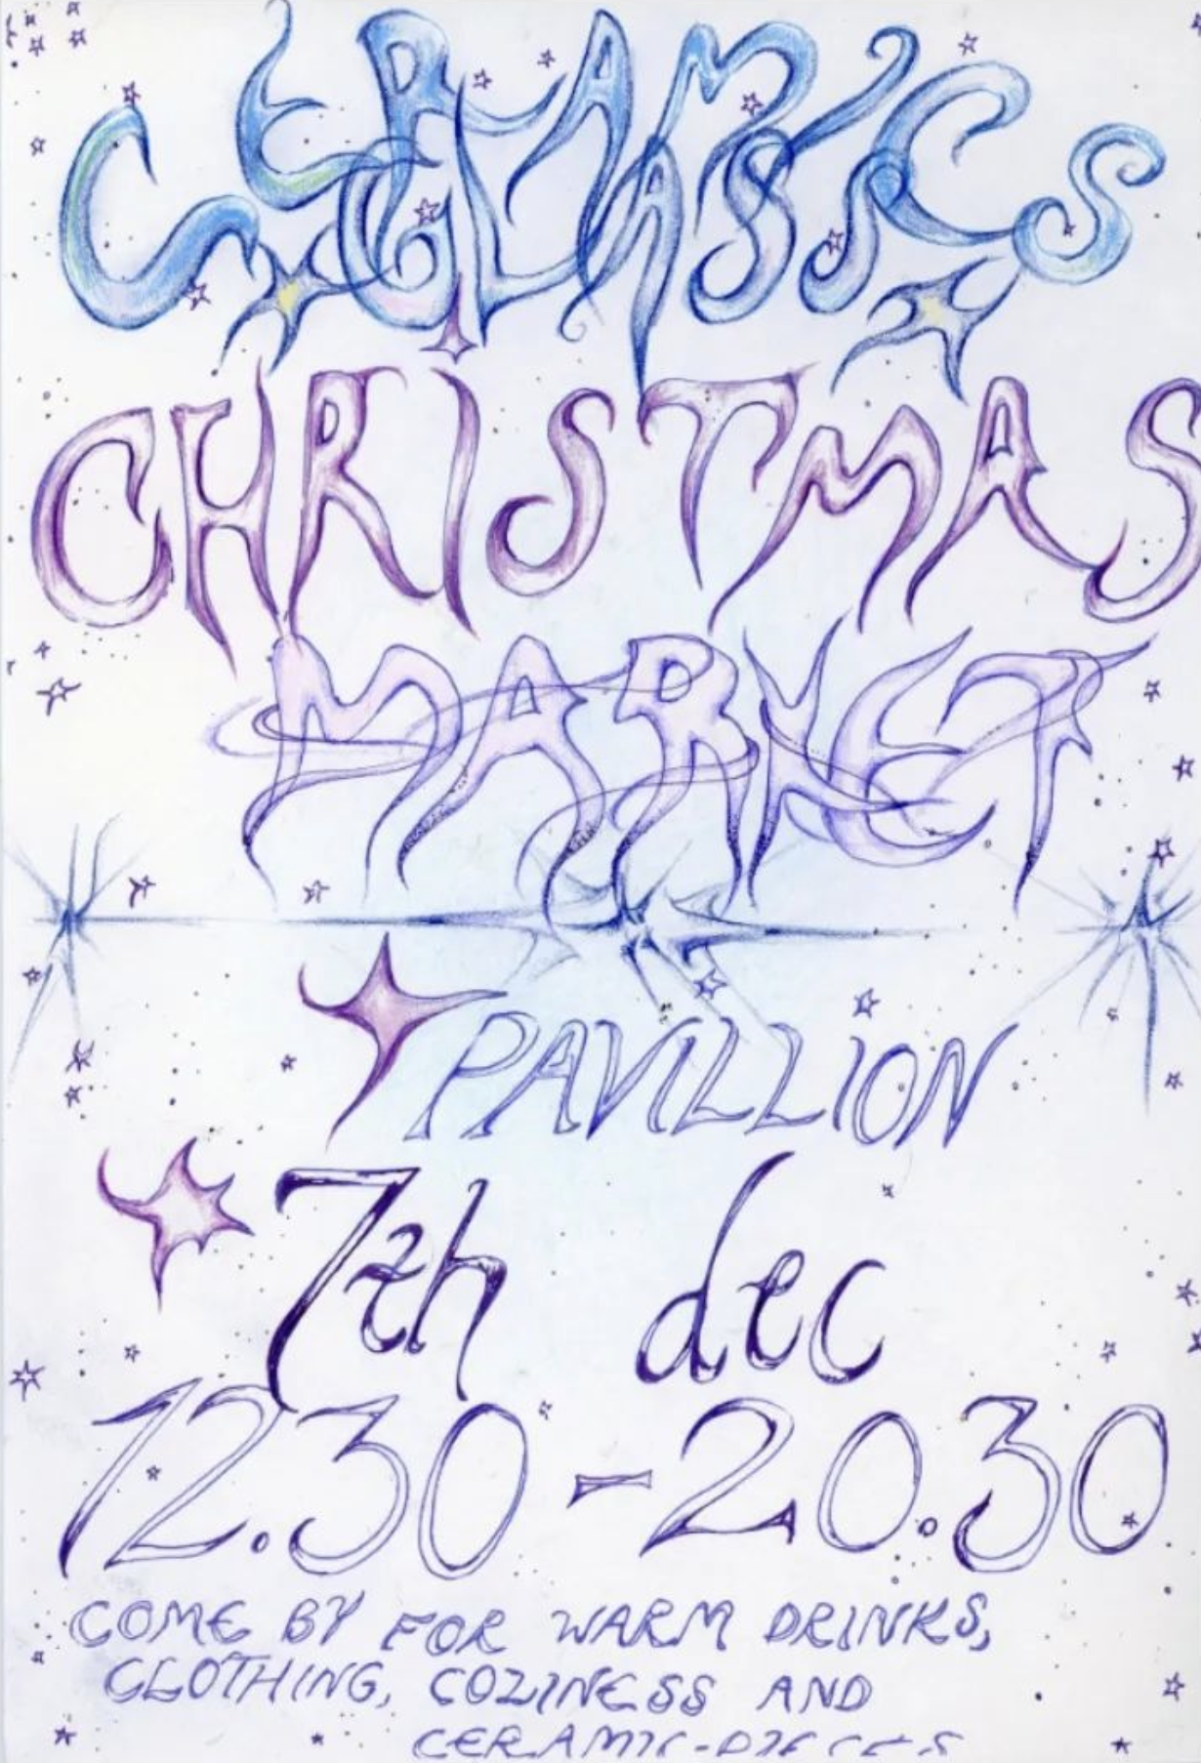 CERAMICS
GLASS
CHRISTMAS
MARKET
PAVILLION
7th dec
12.30-20.30
COME BY FOR WARM DRINKS,
CLOTHING, COZINESS AND
CERAMIC-PIECES